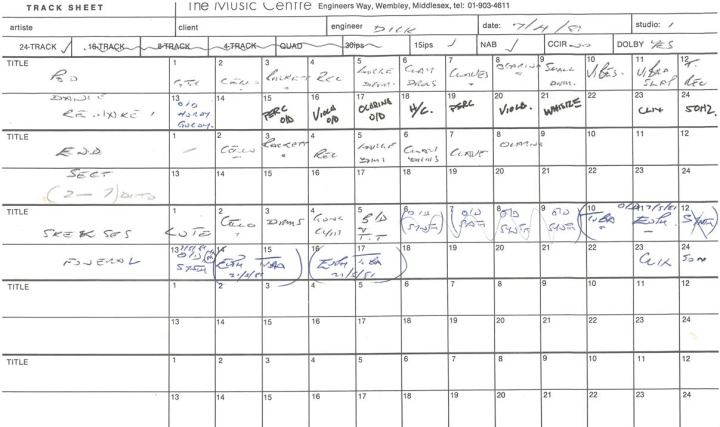 TRACK SHEET The Music Centre Engineers Way, Wembley, Middlesex, tel: 01-903-4611
artiste client engineer DICK date: 7/4/81 studio: 1
24-TRACK ✓ 16-TRACK 8-TRACK 4-TRACK QUAD 30ips 15ips ✓ NAB ✓ CCIR NO DOLBY YES
TITLE 1 2 3 4 5 6 7 8 9 10 11 12
POD CELLO RACKETT REC CLAVES SMALL DRM. VIBES. VIBRA SLAP T. REC
13 14 15 16 17 18 19 20 21 22 23 24
RE-TAKE 1 O/D PERC O/D VIOLA O/D OCARINA O/D H/C. PERC VIOLA. WHISTLE CLIK 50HZ.
TITLE 1 2 3 4 5 6 7 8 9 10 11 12
END CELLO RACKETT REC OCARINA
13 14 15 16 17 18 19 20 21 22 23 24
SECT
(2 — 7) DITTO
TITLE 1 2 3 4 5 6 7 8 9 10 11 12
SKEKSES CELLO DRMS GONG B/D & T.T O/D SYNTH O/D SYNTH O/D SYNTH O/D SYNTH TUBA O/D 21/5/81 EUPH. SYNTH
13 14 15 16 17 18 19 20 21 22 23 24
FUNERAL O/D SYNTH EUPH TUBA 21/5/81 EUPH TUBA 21/5/81 CLIK 50H
TITLE 1 2 3 4 5 6 7 8 9 10 11 12
13 14 15 16 17 18 19 20 21 22 23 24
TITLE 1 2 3 4 5 6 7 8 9 10 11 12
13 14 15 16 17 18 19 20 21 22 23 24